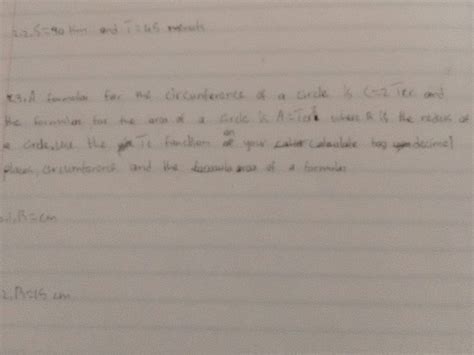 2.2. S=90 km and T=45 minuts
2.3. A formular for the circumference of a circle is C=2πr and
the formular for the area of a circle is A=πr² where R is the radius of
a circle, Use the π function on your calculate two decimal
places, circumference and the area of a formular
R= cm
2. R=15 cm